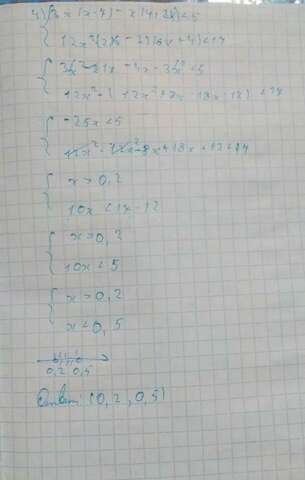 { 3x(x-7) - x(4+3x) < 5
{ 12x² - (2x - 3)(6x + 4) < 17
{ 3x² - 21x - 4x - 3x² < 5
{ 12x² - (12x² + 8x - 18x - 12) < 17
{ -25x < 5
{ 12x² - 12x² - 8x + 18x + 12 < 17
{ x > 0,2
{ 10x < 17 - 12
{ x > 0,2
{ 10x < 5
{ x > 0,2
{ x < 0,5
0,2 0,5
(0,2, 0,5)